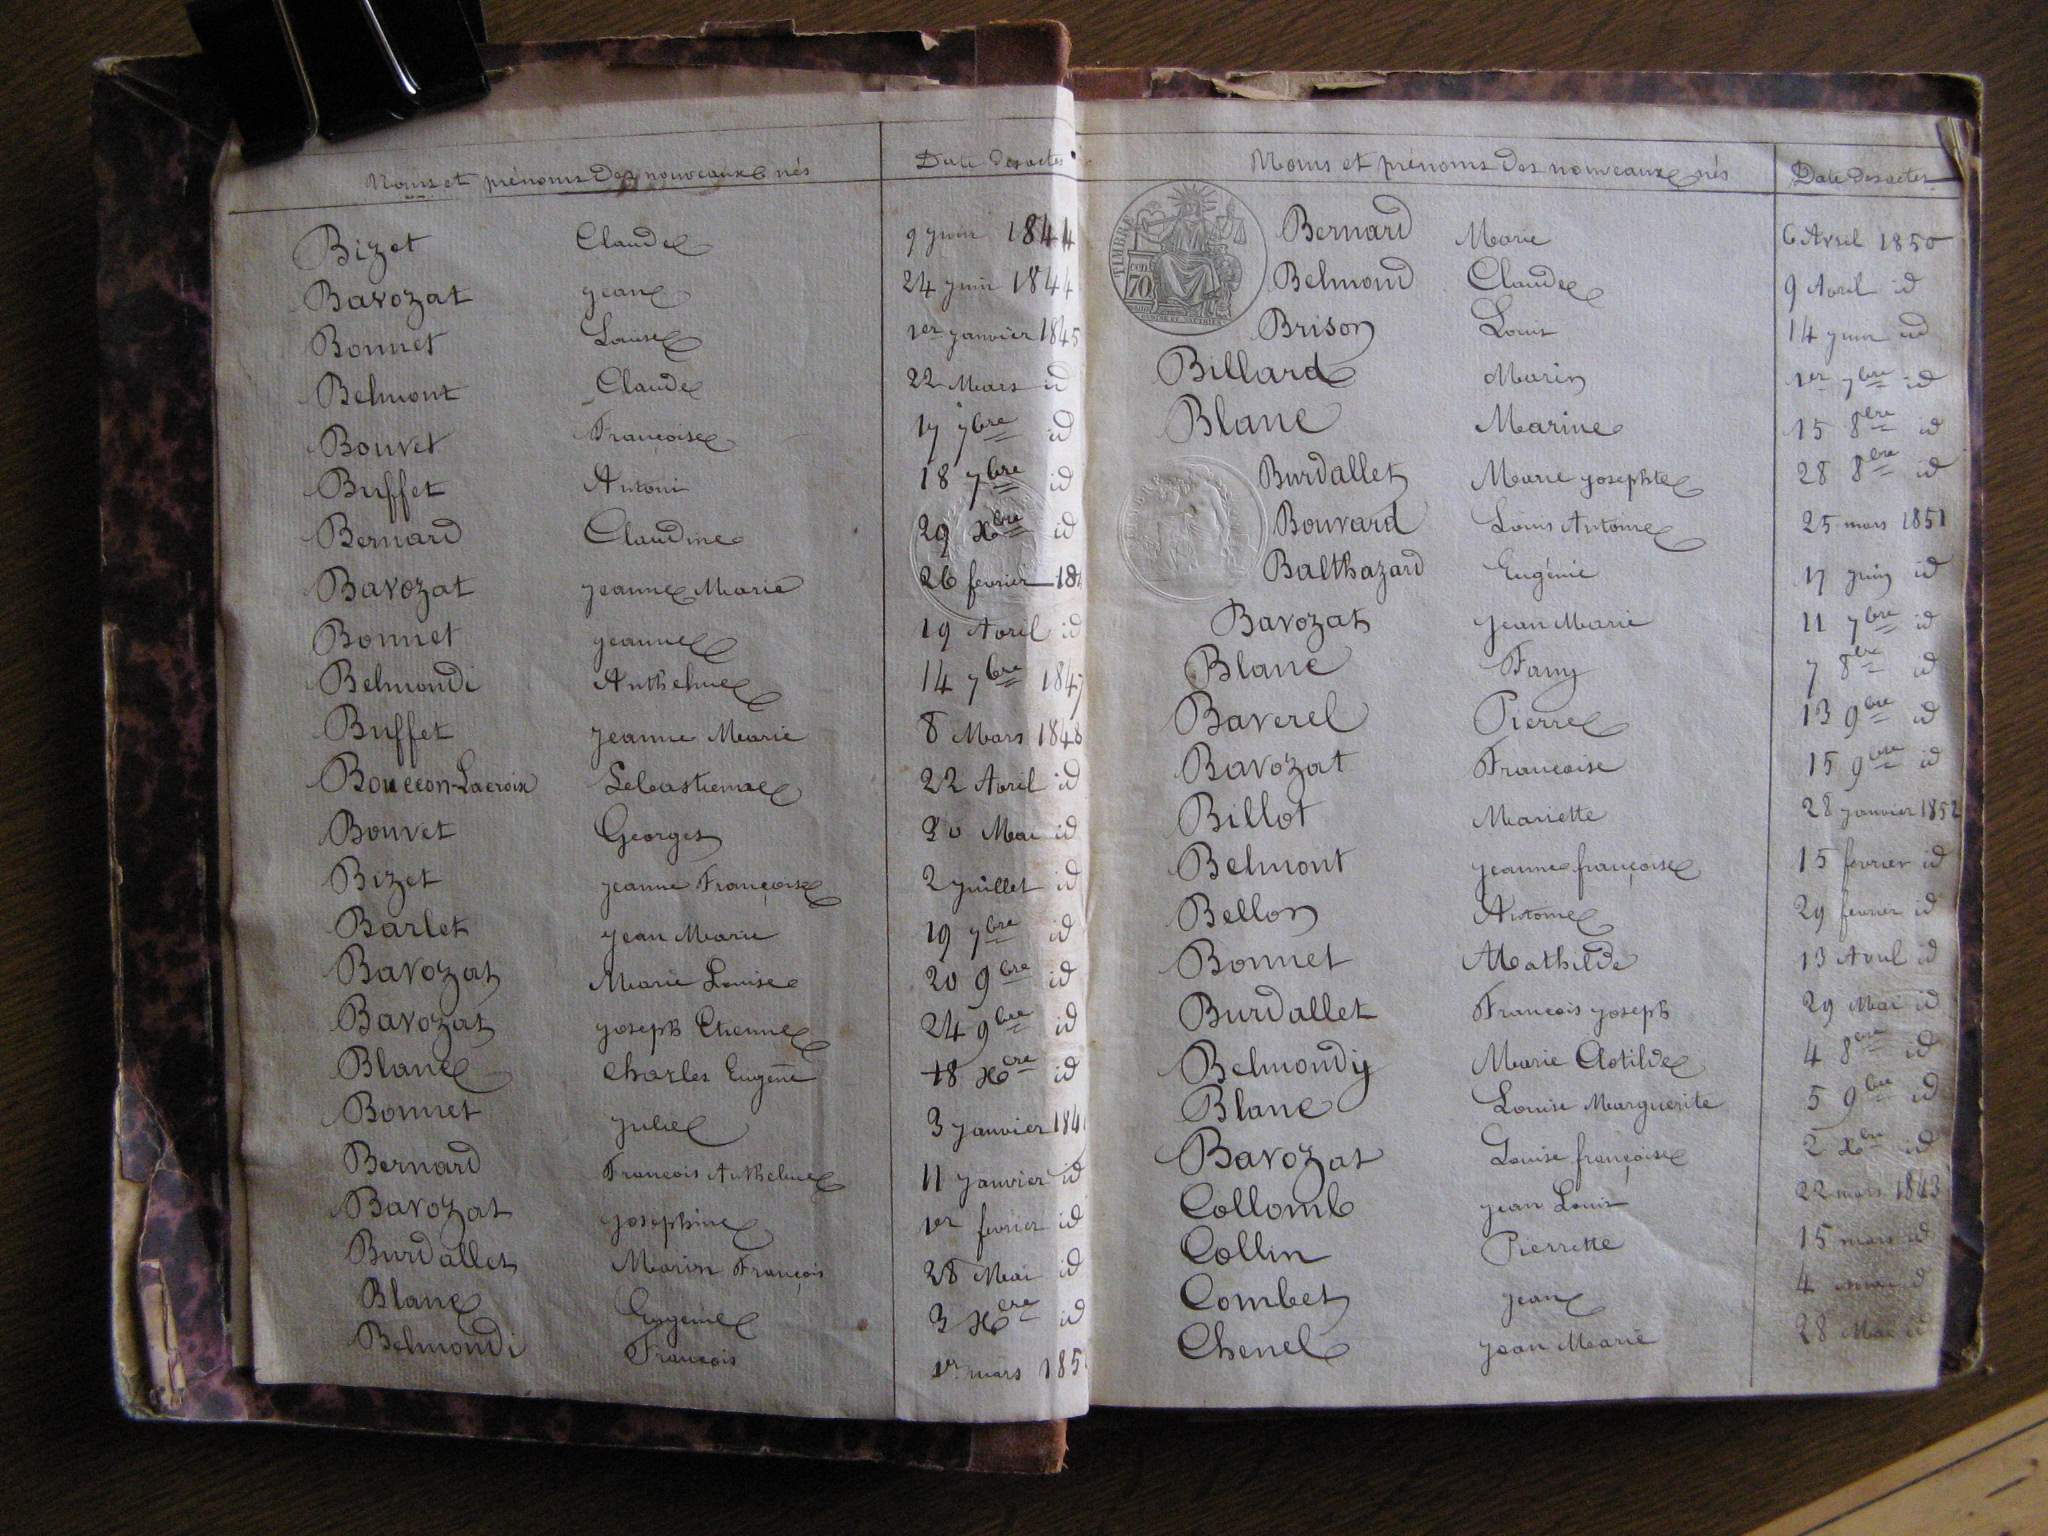 Noms et prénoms des nouveaux nés Date des actes
Bizet Claude 9 juin 1844
Bavozat jean 24 juin 1844
Bonnet Louise 1er janvier 1845
Belmont Claude 22 Mars id
Bouvet Françoise 17 7bre id
Buffet Antoni 18 7bre id
Bernard Claudine 29 Xbre id
Bavozat jeanne Marie 26 fevrier 18
Bonnet jeanne 19 Avril id
Belmondi Anthelme 14 7bre 1847
Buffet jeanne Marie 8 Mars 1848
Bouccon-Lacroix Sebastienne 22 Avril id
Bouvet Georges 30 Mai id
Bizet jeanne Françoise 2 juillet id
Barlet jean Marie 19 7bre id
Bavozat Marie Louise 20 9bre id
Bavozat joseph Etienne 24 9bre id
Blanc Charles Eugène 18 Xbre id
Bonnet julie 3 janvier 184
Bernard François Anthelme 11 janvier id
Bavozat josephine 1er fevrier id
Burdallet Marin François 28 Mai id
Blanc Eugenie 3 Xbre id
Belmondi François 1er mars 185
Noms et prénoms des nouveaux nés Date des actes
TIMBRE
70
Bernard Marie 6 Avril 1850
Belmond Claude 9 Avril id
Brison Louis 14 juin id
Billard Marin 1er 7bre id
Blanc Marine 15 8bre id
Burdallet Marie josephte 28 8bre id
Bouvard Louis Antoine 25 mars 1851
Balthazard Eugénie 17 juin id
Bavozat jean Marie 11 7bre id
Blanc Fany 7 8bre id
Baverel Pierre 13 9bre id
Bavozat Francoise 15 9bre id
Billot Mariette 28 janvier 1852
Belmont jeanne françoise 15 fevrier id
Bellon Antoine 29 fevrier id
Bonnet Mathilde 13 Avril id
Burdallet François joseph 29 Mai id
Belmondy Marie Clotilde 4 8bre id
Blanc Louise Marguerite 5 9bre id
Bavozat Louise françoise 2 Xbre id
Collomb jean Louis 22 mars 1843
Collin Pierrette 15 mars id
Combet jean 4 mai id
Chenel jean Marie 28 Mai id